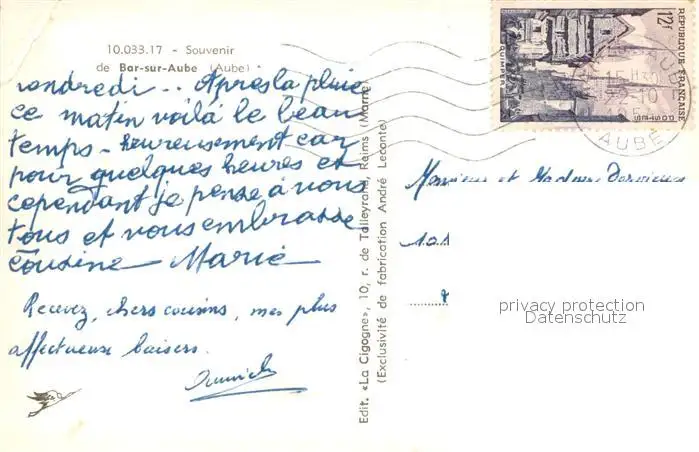 10.033.17 - Souvenir
de Bar-sur-Aube (Aube)
vendredi.. Après la pluie
ce matin voilà le beau
temps - heureusement car
pour quelques heures et
cependant je pense à vous
tous et vous embrasse
Cousine Marie
Recevez, chers cousins, mes plus
affectueux baisers.
Edit. «La Cigogne», 10, r. de Talleyrand, Reims (Marne)
(Exclusivité de fabrication André Leconte)
12F
RÉPUBLIQUE FRANÇAISE
POSTES
QUIMPER
15H30
22-10
AUBE
Monsieur et Madame
101
privacy protection
Datenschutz